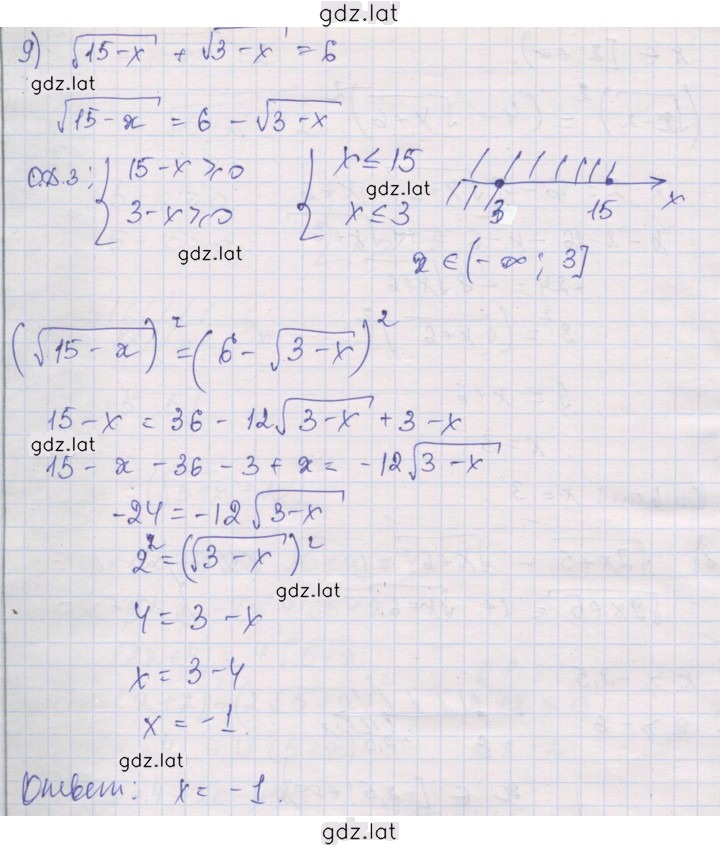 gdz.lat
9) √(15-x) + √(3-x) = 6
gdz.lat
√(15-x) = 6 - √(3-x)
О.Д.З: { 15-x ⩾ 0 { x ≤ 15
gdz.lat
3-x ⩾ 0 x ≤ 3
3 15 x
gdz.lat
x ∈ (-∞; 3]
(√(15-x))² = (6 - √(3-x))²
15-x = 36 - 12√(3-x) + 3-x
gdz.lat
15-x-36-3+x = -12√(3-x)
-24 = -12√(3-x)
2² = (√(3-x))²
gdz.lat
4 = 3-x
x = 3-4
x = -1.
gdz.lat
Ответ: x = -1.
gdz.lat